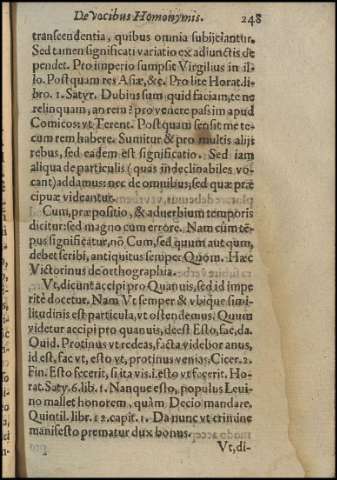 De vocibus Homonymis. 248
transcendentia, quibus omnia subijciantur.
Sed tamen significati variatio ex adiunctis de
pendet. Pro imperio sumpsit Virgilius in il-
lo. Postquam res Asiæ, &c. Pro lite Horat. li
bro. 1. Satyr. Dubius sum quid faciam, te ne
relinquam, an rem? pro venere passim apud
Comicos: vt Terent. Postquam sensit me te-
cum rem habere. Sumitur & pro multis alijs
rebus, sed eadem est significatio. Sed iam
aliqua de particulis (quas indeclinabiles vo-
cant) addamus: nec de omnibus, sed quæ præ
cipuæ videantur.
Cum, præpositio, & aduerbium temporis
dicitur: sed magno cum errore. Nam cum tẽ-
pus significatur, nõ Cum, sed quum aut qum,
debet scribi, antiquitus semper Quom. Hæc
Victorinus de orthographia.
Vt, dicunt accipi pro Quanuis, sed id impe
ritè docetur. Nam Vt semper & vbique simi-
litudinis est particula, vt ostendemus. Quum
videtur accipi pro quanuis, deest Esto, fac, da.
Quid. Protinus vt redeas, facta videbor anus,
id est, fac vt, esto vt, protinus venias, Cicer. 2.
Fin. Esto fecerit, si ita vis. i. esto vt fecerit. Ho-
rat. Saty. 6. lib. 1. Nanque esto, populus Leui-
no mallet honorem, quàm Decio mandare.
Quintil. libr. 12. capit. 1. Da nunc vt crimine
manifesto prematur dux bonus.
Vt, di-